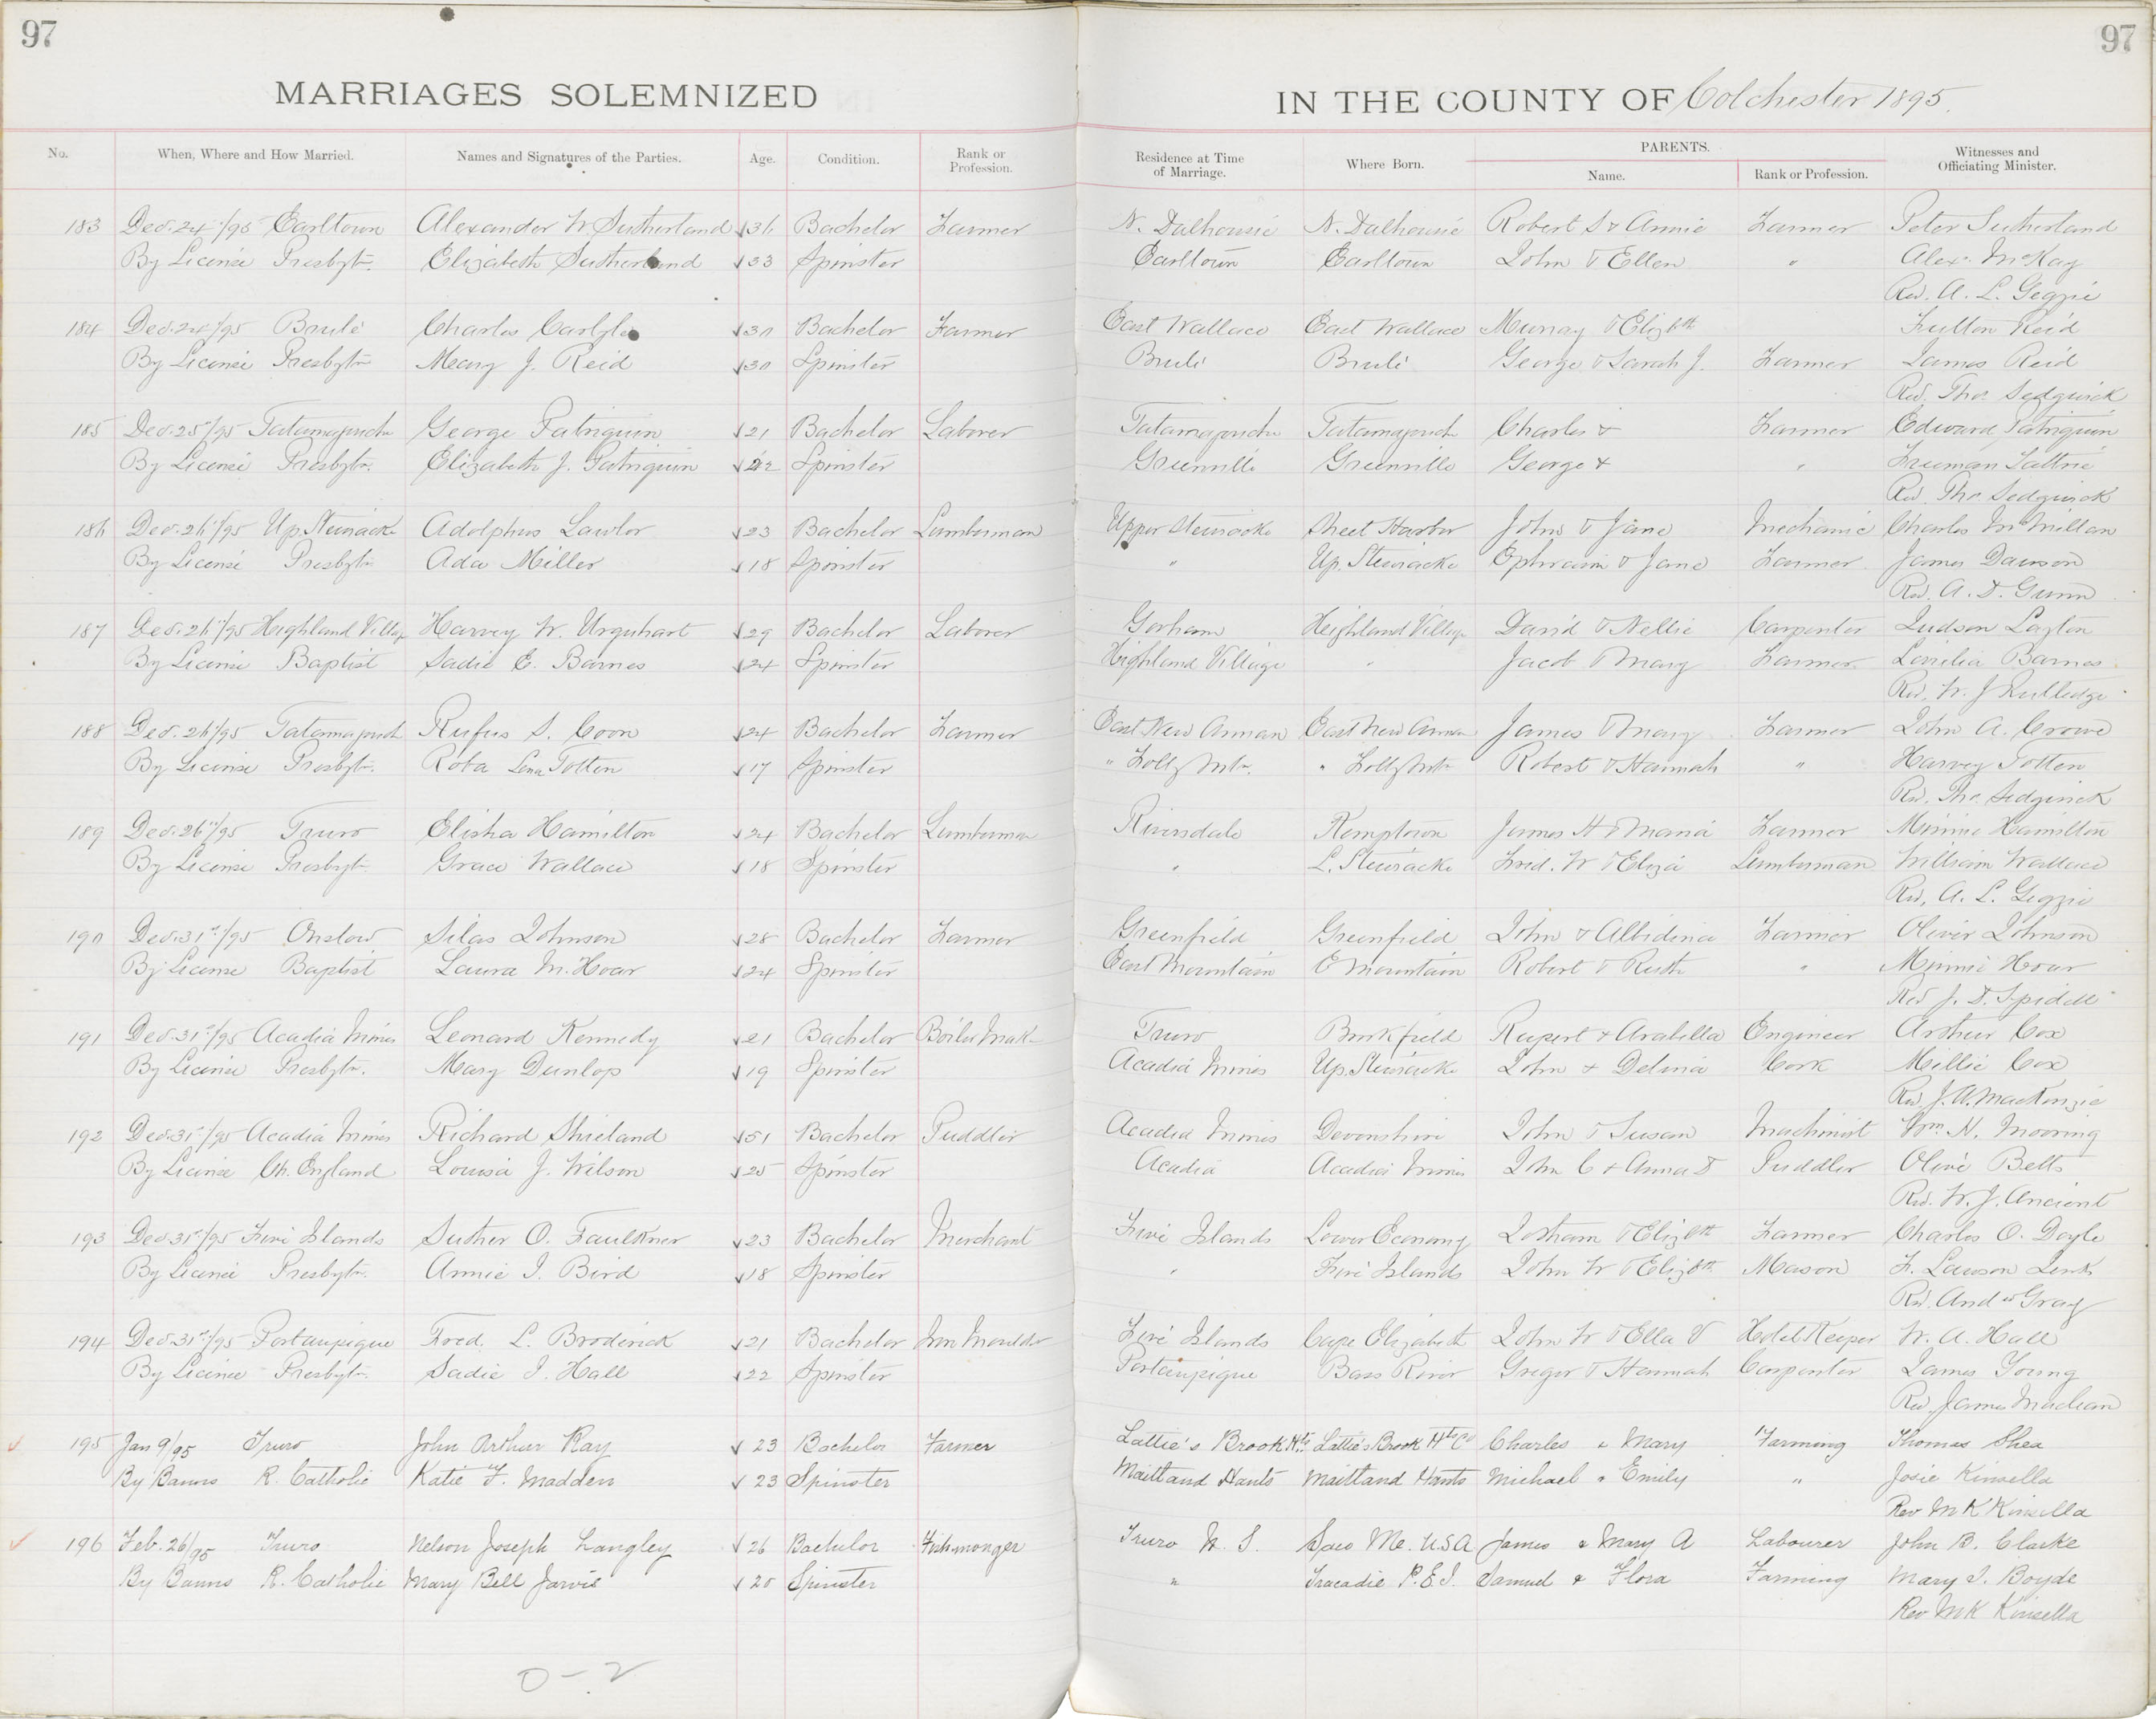 97
97
MARRIAGES SOLEMNIZED IN THE COUNTY OF Colchester 1895.
No. When, Where and How Married. Names and Signatures of the Parties. Age. Condition. Rank or Profession. Residence at Time of Marriage. Where Born. PARENTS. Name. Rank or Profession. Witnesses and Officiating Minister.
183 Dec. 24th/95 Earltown Alexander W Sutherland √36 Bachelor Farmer N. Dalhousie N. Dalhousie Robert S & Annie Farmer Peter Sutherland
By License Presbytn. Elizabeth Sutherland √33 Spinster Earltown Earltown John & Ellen " Alex. McKay
Rev. A. L. Geggie
184 Dec. 24th/95 Brulé Charles Carlyle √30 Bachelor Farmer East Wallace East Wallace Murray & Elizbth Fulton Reid
By License Presbytn Mary J. Reid √30 Spinster Brulé Brulé George & Sarah J. Farmer James Reid
Rev. Thos. Sedgwick
185 Dec. 25th/95 Tatamagouche George Patriquin √21 Bachelor Laborer Tatamagouche Tatamagouch Charles & Farmer Edward Patriquin
By License Presbytn. Elizabeth J. Patriquin √22 Spinster Greenville Greenville George & " Freeman Tattrie
Rev. Tho. Sedgwick
186 Dec. 26th/95 Up. Stewiacke Adolphus Lawlor √23 Bachelor Lumberman Upper Stewiacke Sheet Harbor John & Jane Mechanic Charles McMillan
By License Presbytn Ada Miller √18 Spinster " Up. Stewiacke Ephraim & Jane Farmer James Dawson
Rev. A. D. Gunn
187 Dec. 26th/95 Highland Village Harvey W. Urquhart √29 Bachelor Laborer Gorham Highland Village David & Nellie Carpenter Judson Layton
By License Baptist Sadie E. Barnes √24 Spinster Highland Village " Jacob & Mary Farmer Barnes
Rev. W. J Rutledge
188 Dec. 26th/95 Tatamagouch Rufus S. Coon √24 Bachelor Farmer East New Annan East New Annan James & Mary Farmer John A. Crowe
By License Presbytn. Lena Totten √17 Spinster " Folly Mtn. " Folly Mtn Robert & Hannah " Harvey Totten
Rev. Tho. Sedgwick
189 Dec. 26th/95 Truro Elisha Hamilton √24 Bachelor Lumberman Riversdale Kemptown James H & Maria Farmer Minnie Hamilton
By License Presbyt. Grace Wallace √18 Spinster " L. Stewiacke Fred. W & Eliza Lumberman William Wallace
Rev. A. L. Geggie
190 Dec. 31st/95 Onslow Silas Johnson √28 Bachelor Farmer Greenfield Greenfield John & Albidina Farmer Oliver Johnson
By License Baptist Laura M. Hoar √24 Spinster East Mountain E Mountain Robert & Ruth " Minnie Hoar
Rev J. D. Spidell
191 Dec. 31st/95 Acadia Mines Leonard Kennedy √21 Bachelor Boiler Mak. Truro Brookfield Rupert & Arabella Engineer Arthur Cox
By License Presbytn. Mary Dunlop √19 Spinster Acadia Mines Up. Stewiacke John & Delina Cook Millie Cox
Rev J. A. MacKenzie
192 Dec. 31st/95 Acadia Mines Richard Shieland √51 Bachelor Puddler Acadia Mines Devonshire John & Susan Machinist Wm. N. Mooring
By License Ch. England Louisa J. Wilson √25 Spinster Acadia Acadia Mines John C & Anna D Puddler Olive Betts
Rev. W. J. Ancient
193 Dec. 31st/95 Five Islands Luther O. Faulkner √23 Bachelor Merchant Five Islands Lower Economy Jotham & Elizbth Farmer Charles O. Doyle
By License Presbytn. Annie I. Bird √18 Spinster " Five Islands John W & Elizbth Mason F. Lawson Jenks
Rev. Andw Gray
194 Dec. 31st/95 Portaupique Fred. L. Broderick √21 Bachelor Iron Moulder Five Islands Cape Elizabeth John W & Ella V Hotel Keeper W. A. Hall
By License Presbytn. Sadie I. Hall √22 Spinster Portaupique Bass River Gregor & Hannah Carpenter James Young
Rev. James Maclean
√ 195 Jan 9/95 Truro John Arthur Ray √ 23 Bachelor Farmer Lattie's Brook Hts. Lattie's Brook Hts Co Charles & Mary Farming Thomas Shea
By Banns R. Catholic Katie F. Madden √ 23 Spinster Maitland Hants Maitland Hants Michael & Emily " Josie Kinsella
Rev M K Kinsella
√ 196 Feb. 26/95 Truro Nelson Joseph Langley √ 26 Bachelor Fishmonger Truro N. S. Saco Me. U.S.A James & Mary A Labourer John B. Clarke
By Banns R. Catholic Mary Bell Jarvis √ 20 Spinster " Tracadie P.E.I. Samuel & Flora Farming Mary I. Boyde
Rev M K Kinsella
0 - 2